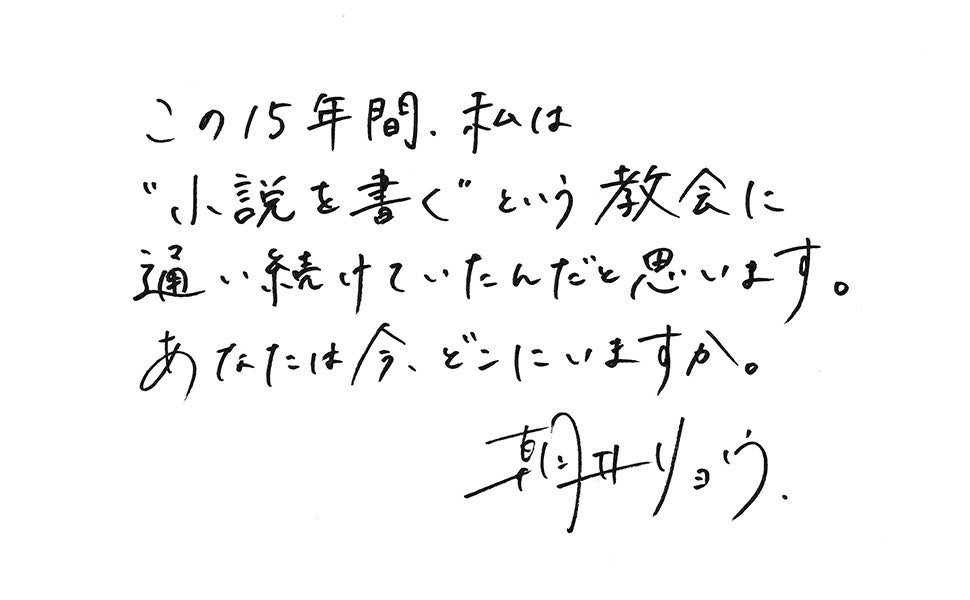 この15年間、私は
“小説を書く”という教会に
通い続けていたんだと思います。
あなたは今、どこにいますか。
朝井リョウ.